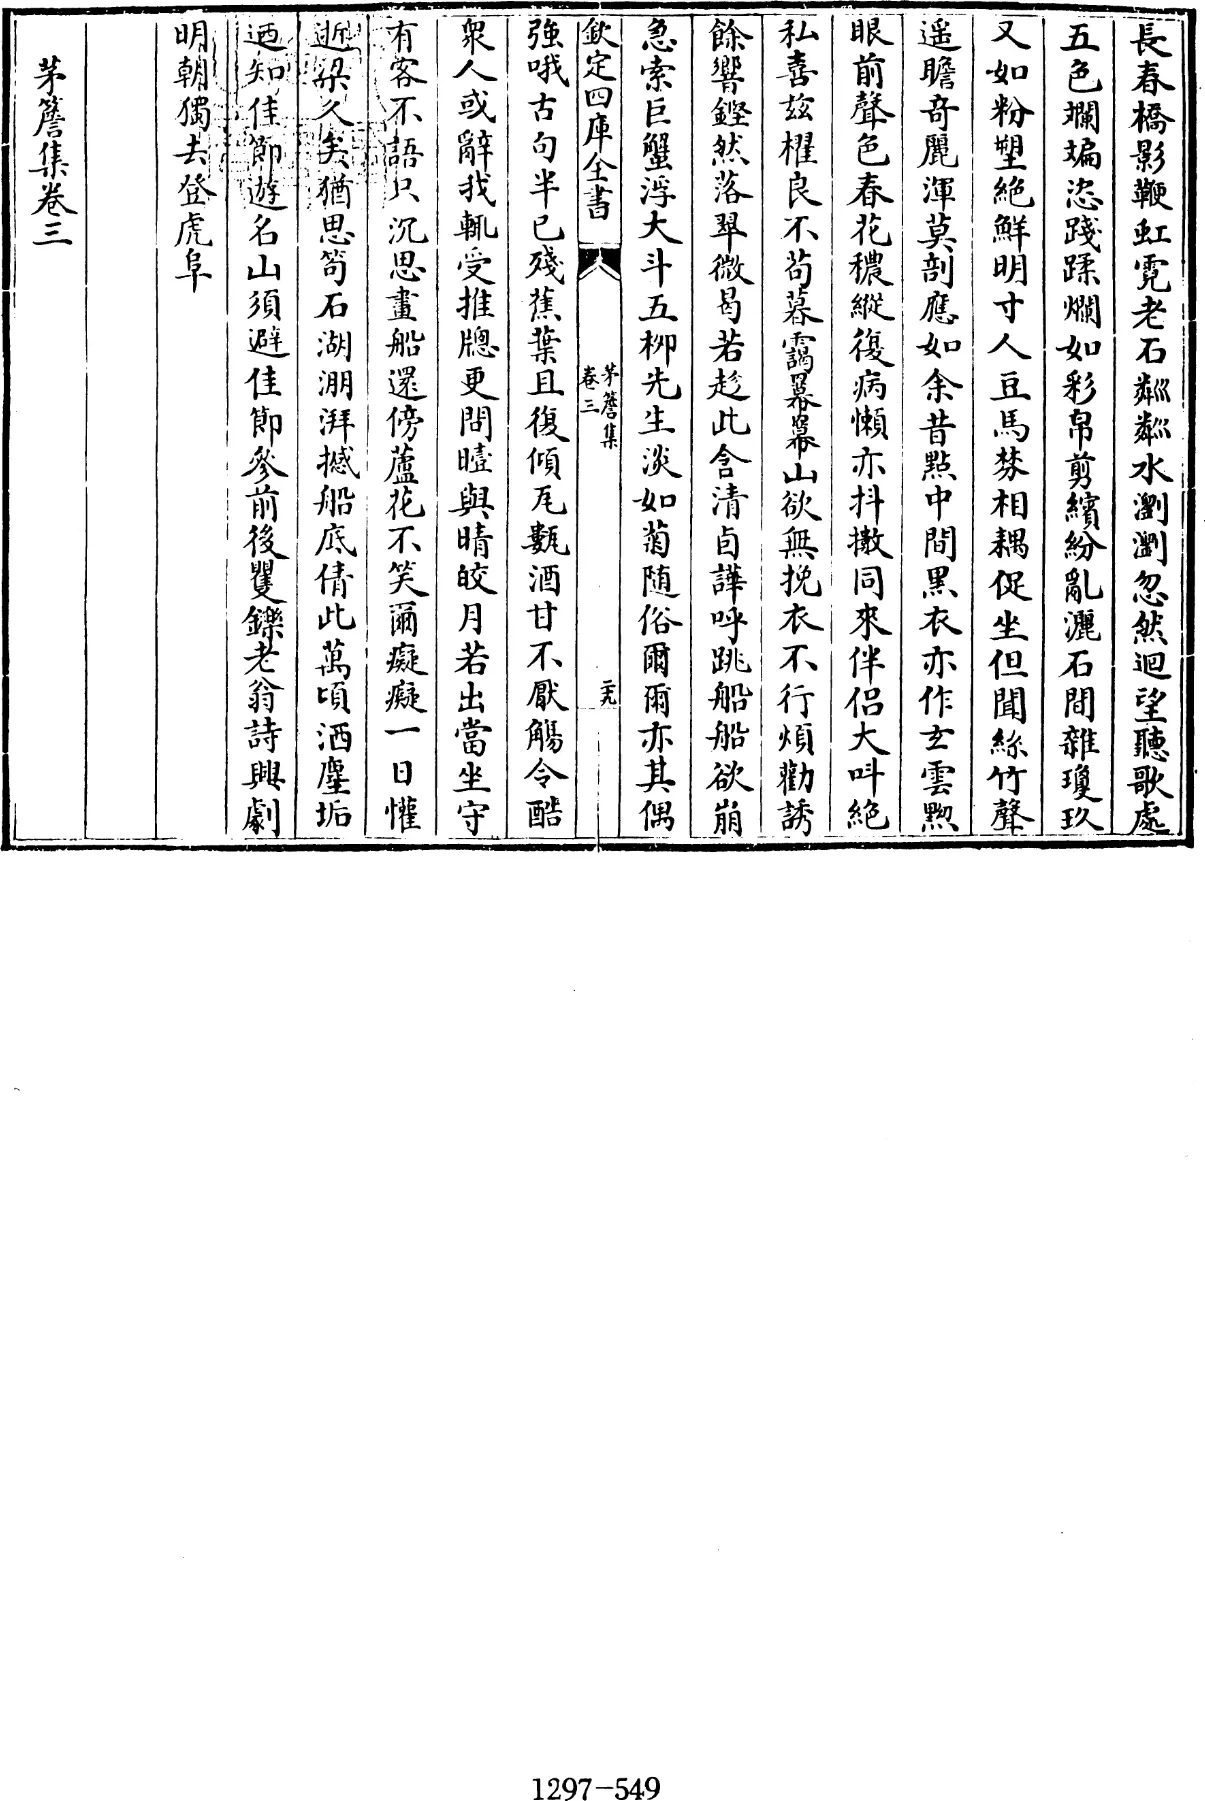 長春橋影鞭虹霓老石粼粼水瀏瀏忽然迴望聽歌處
五色斕斒恣踐蹂爛如彩帛剪繽紛亂灑石間雜瓊玖
又如粉塑絶鮮明寸人豆馬棼相耦促坐但聞絲竹聲
遥瞻奇麗渾莫剖應如余昔點中間黑衣亦作玄雲黝
眼前聲色春花穠縱復病懶亦抖擻同來伴侣大呌絶
私喜兹櫂良不茍暮靄羃羃山欲無挽衣不行煩勸誘
餘響鏗然落翠微曷若趁此含清卣譁呼跳船船欲崩
急索巨蟹浮大斗五柳先生淡如菊随俗爾爾亦其偶
欽定四庫全書
茅簷集
卷三
三九
強哦古句半已殘蕉葉且復傾瓦甊酒甘不厭觴令酷
衆人或辭我輒受推牕更問曀與晴皎月若出當坐守
有客不語只沉思畫船還傍蘆花不笑爾癡癡一日懽
逝梁久矣猶思笱石湖淜湃撼船底倩此萬頃洒塵垢
迺知佳節遊名山須避佳節參前後矍鑠老翁詩興劇
明朝獨去登虎阜
茅簷集卷三
1297-549